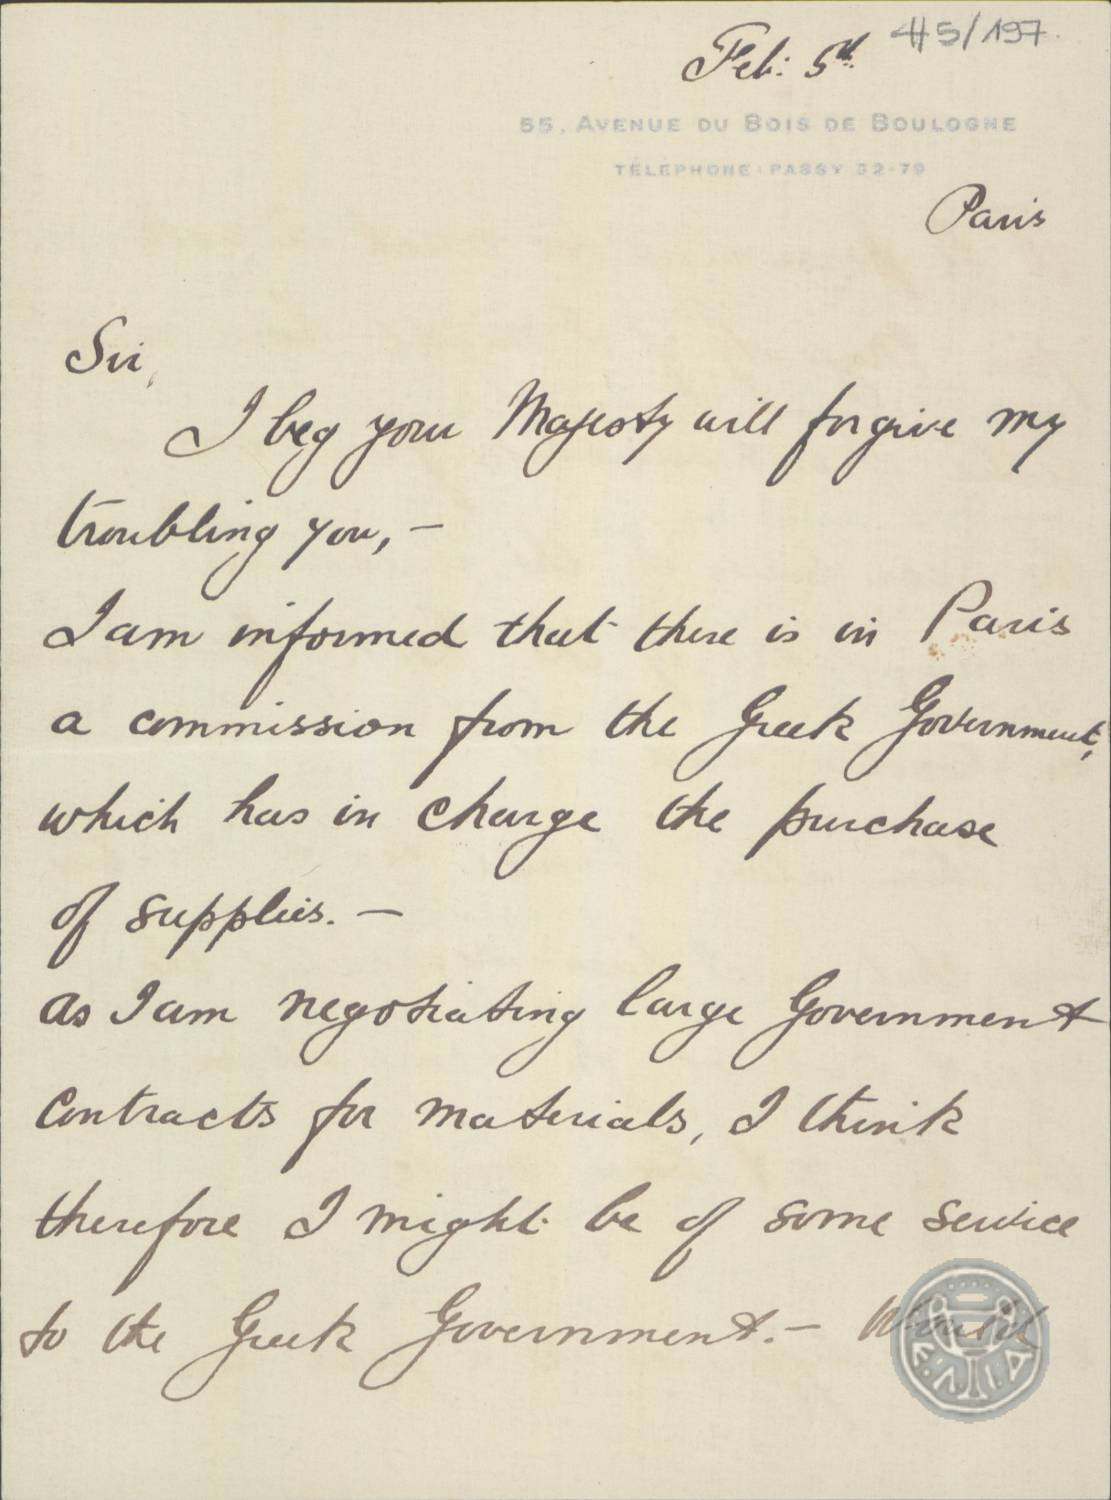 45/197.
Feb: 5th
55, AVENUE DU BOIS DE BOULOGNE
TÉLÉPHONE: PASSY 32-79
Paris
Sir,
I beg your Majesty will forgive my
troubling you, —
I am informed that there is in Paris
a commission from the Greek Government,
which has in charge the purchase
of supplies. —
as I am negotiating large Government
contracts for materials, I think
therefore I might be of some service
to the Greek Government. — Would
Ε.Λ.Ι.Α